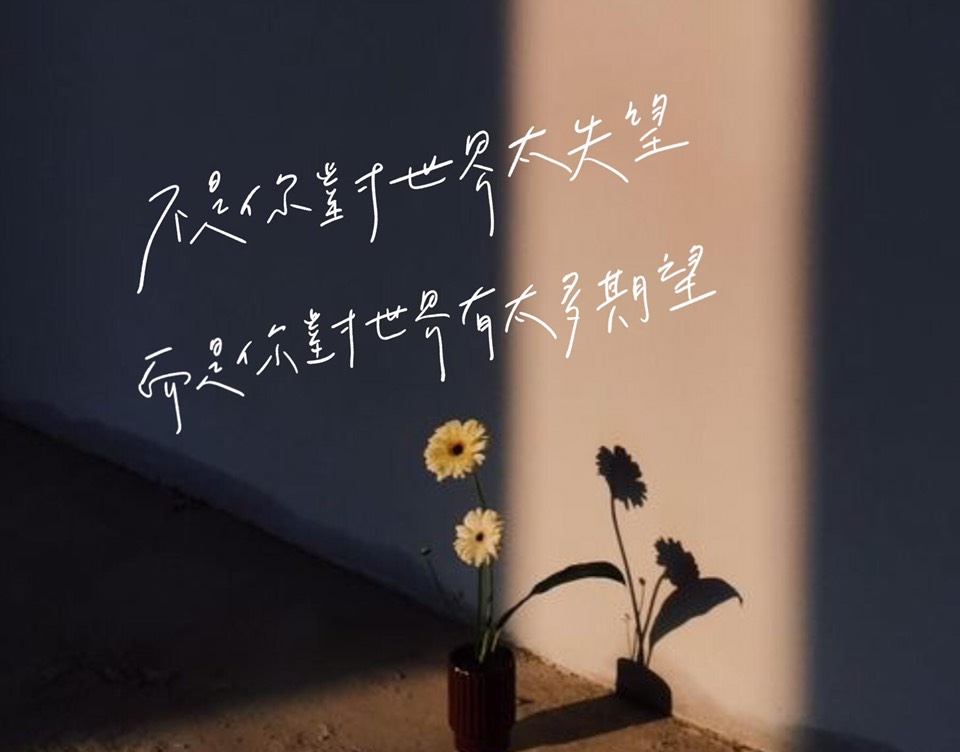 不是你對世界太失望
而是你對世界有太多期望